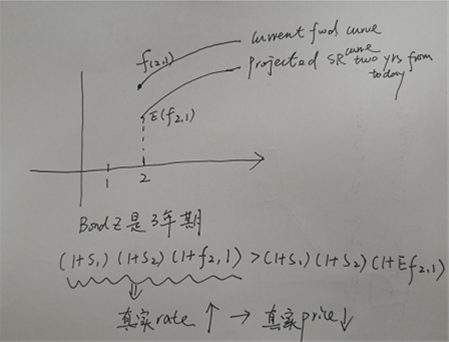 current fwd curve
f(2,1)
projected SR curve two yrs from today
E(f2,1)
1 2
Bond Z是3年期
(1+S1)(1+S2)(1+f2,1)>(1+S1)(1+S2)(1+Ef2,1)
⇓
真实rate ↑ → 真实price↓